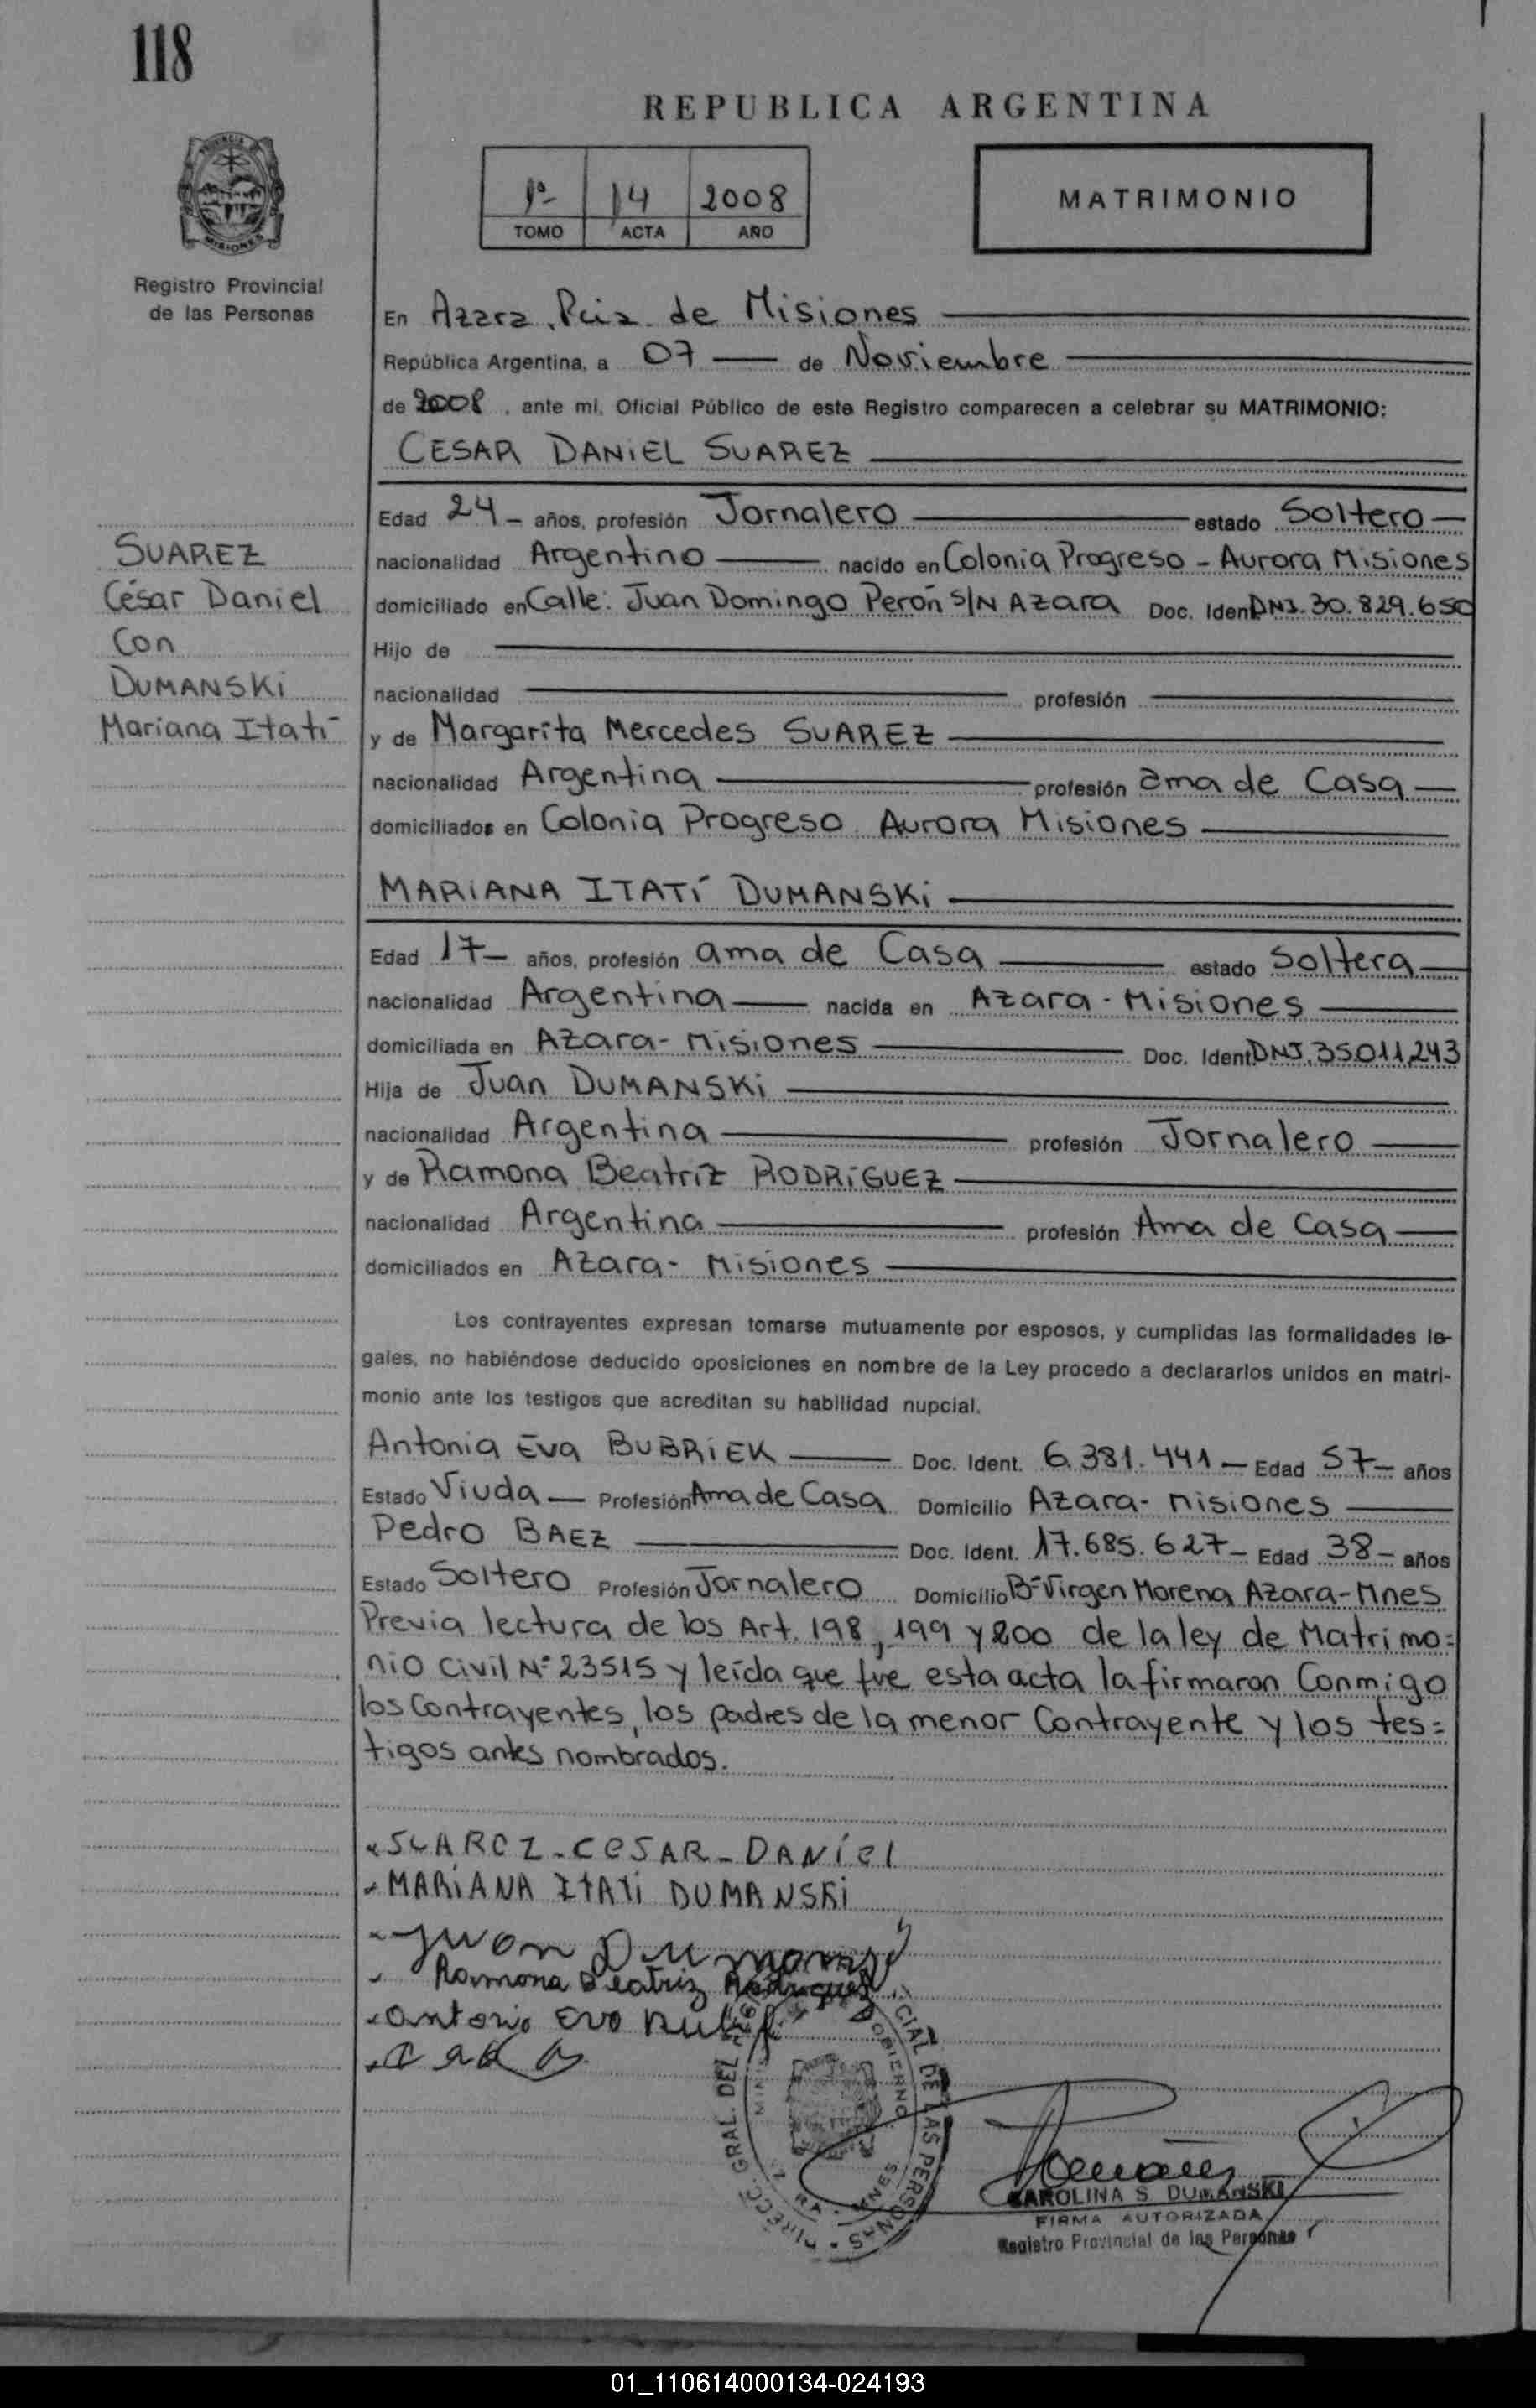 118
REPUBLICA ARGENTINA
1º 14 2008
TOMO ACTA AÑO
MATRIMONIO
PROVINCIA DE
MISIONES
Registro Provincial
de las Personas
En Azara, Pcia de Misiones
República Argentina, a 07 de Noviembre
de 2008, ante mi, Oficial Público de este Registro comparecen a celebrar su MATRIMONIO:
CESAR DANIEL SUAREZ
Edad 24 años, profesión Jornalero estado Soltero
nacionalidad Argentino nacido en Colonia Progreso - Aurora Misiones
domiciliado en Calle: Juan Domingo Perón S/N Azara Doc. Iden DNI. 30.829.650
Hijo de
nacionalidad profesión
y de Margarita Mercedes SUAREZ
nacionalidad Argentina profesión ama de Casa
domiciliados en Colonia Progreso Aurora Misiones
SUAREZ
César Daniel
Con
DUMANSKI
Mariana Itatí
MARIANA ITATÍ DUMANSKI
Edad 17 años, profesión ama de Casa estado Soltera
nacionalidad Argentina nacida en Azara - Misiones
domiciliada en Azara - Misiones Doc. Ident DNI. 35.011.243
Hija de Juan DUMANSKI
nacionalidad Argentina profesión Jornalero
y de Ramona Beatriz RODRÍGUEZ
nacionalidad Argentina profesión Ama de Casa
domiciliados en Azara - Misiones
Los contrayentes expresan tomarse mutuamente por esposos, y cumplidas las formalidades le-
gales, no habiéndose deducido oposiciones en nombre de la Ley procedo a declararlos unidos en matri-
monio ante los testigos que acreditan su habilidad nupcial.
Antonia Eva BUBRIEK Doc. Ident. 6.381.441 Edad 57 años
Estado Viuda Profesión Ama de Casa Domicilio Azara - Misiones
Pedro BAEZ Doc. Ident. 17.685.627 Edad 38 años
Estado Soltero Profesión Jornalero Domicilio Bº Virgen Morena Azara - Mnes
Previa lectura de los Art. 198, 199 y 200 de la ley de Matrimo=
nio Civil Nº 23515 y leída que fue esta acta la firmaron Conmigo
los Contrayentes, los padres de la menor Contrayente y los tes=
tigos antes nombrados.
SUAREZ - CESAR - DANÍEL
MARIANA ITATI DUMANSKI
Juan Dumanski
Ramona Beatriz Rodriguez
Antonia Eva
DIRECC. GRAL. DEL DE LAS PERSONAS
CAROLINA S. DUMANSKI
FIRMA AUTORIZADA
Registro Provincial de las Personas
01_110614000134-024193